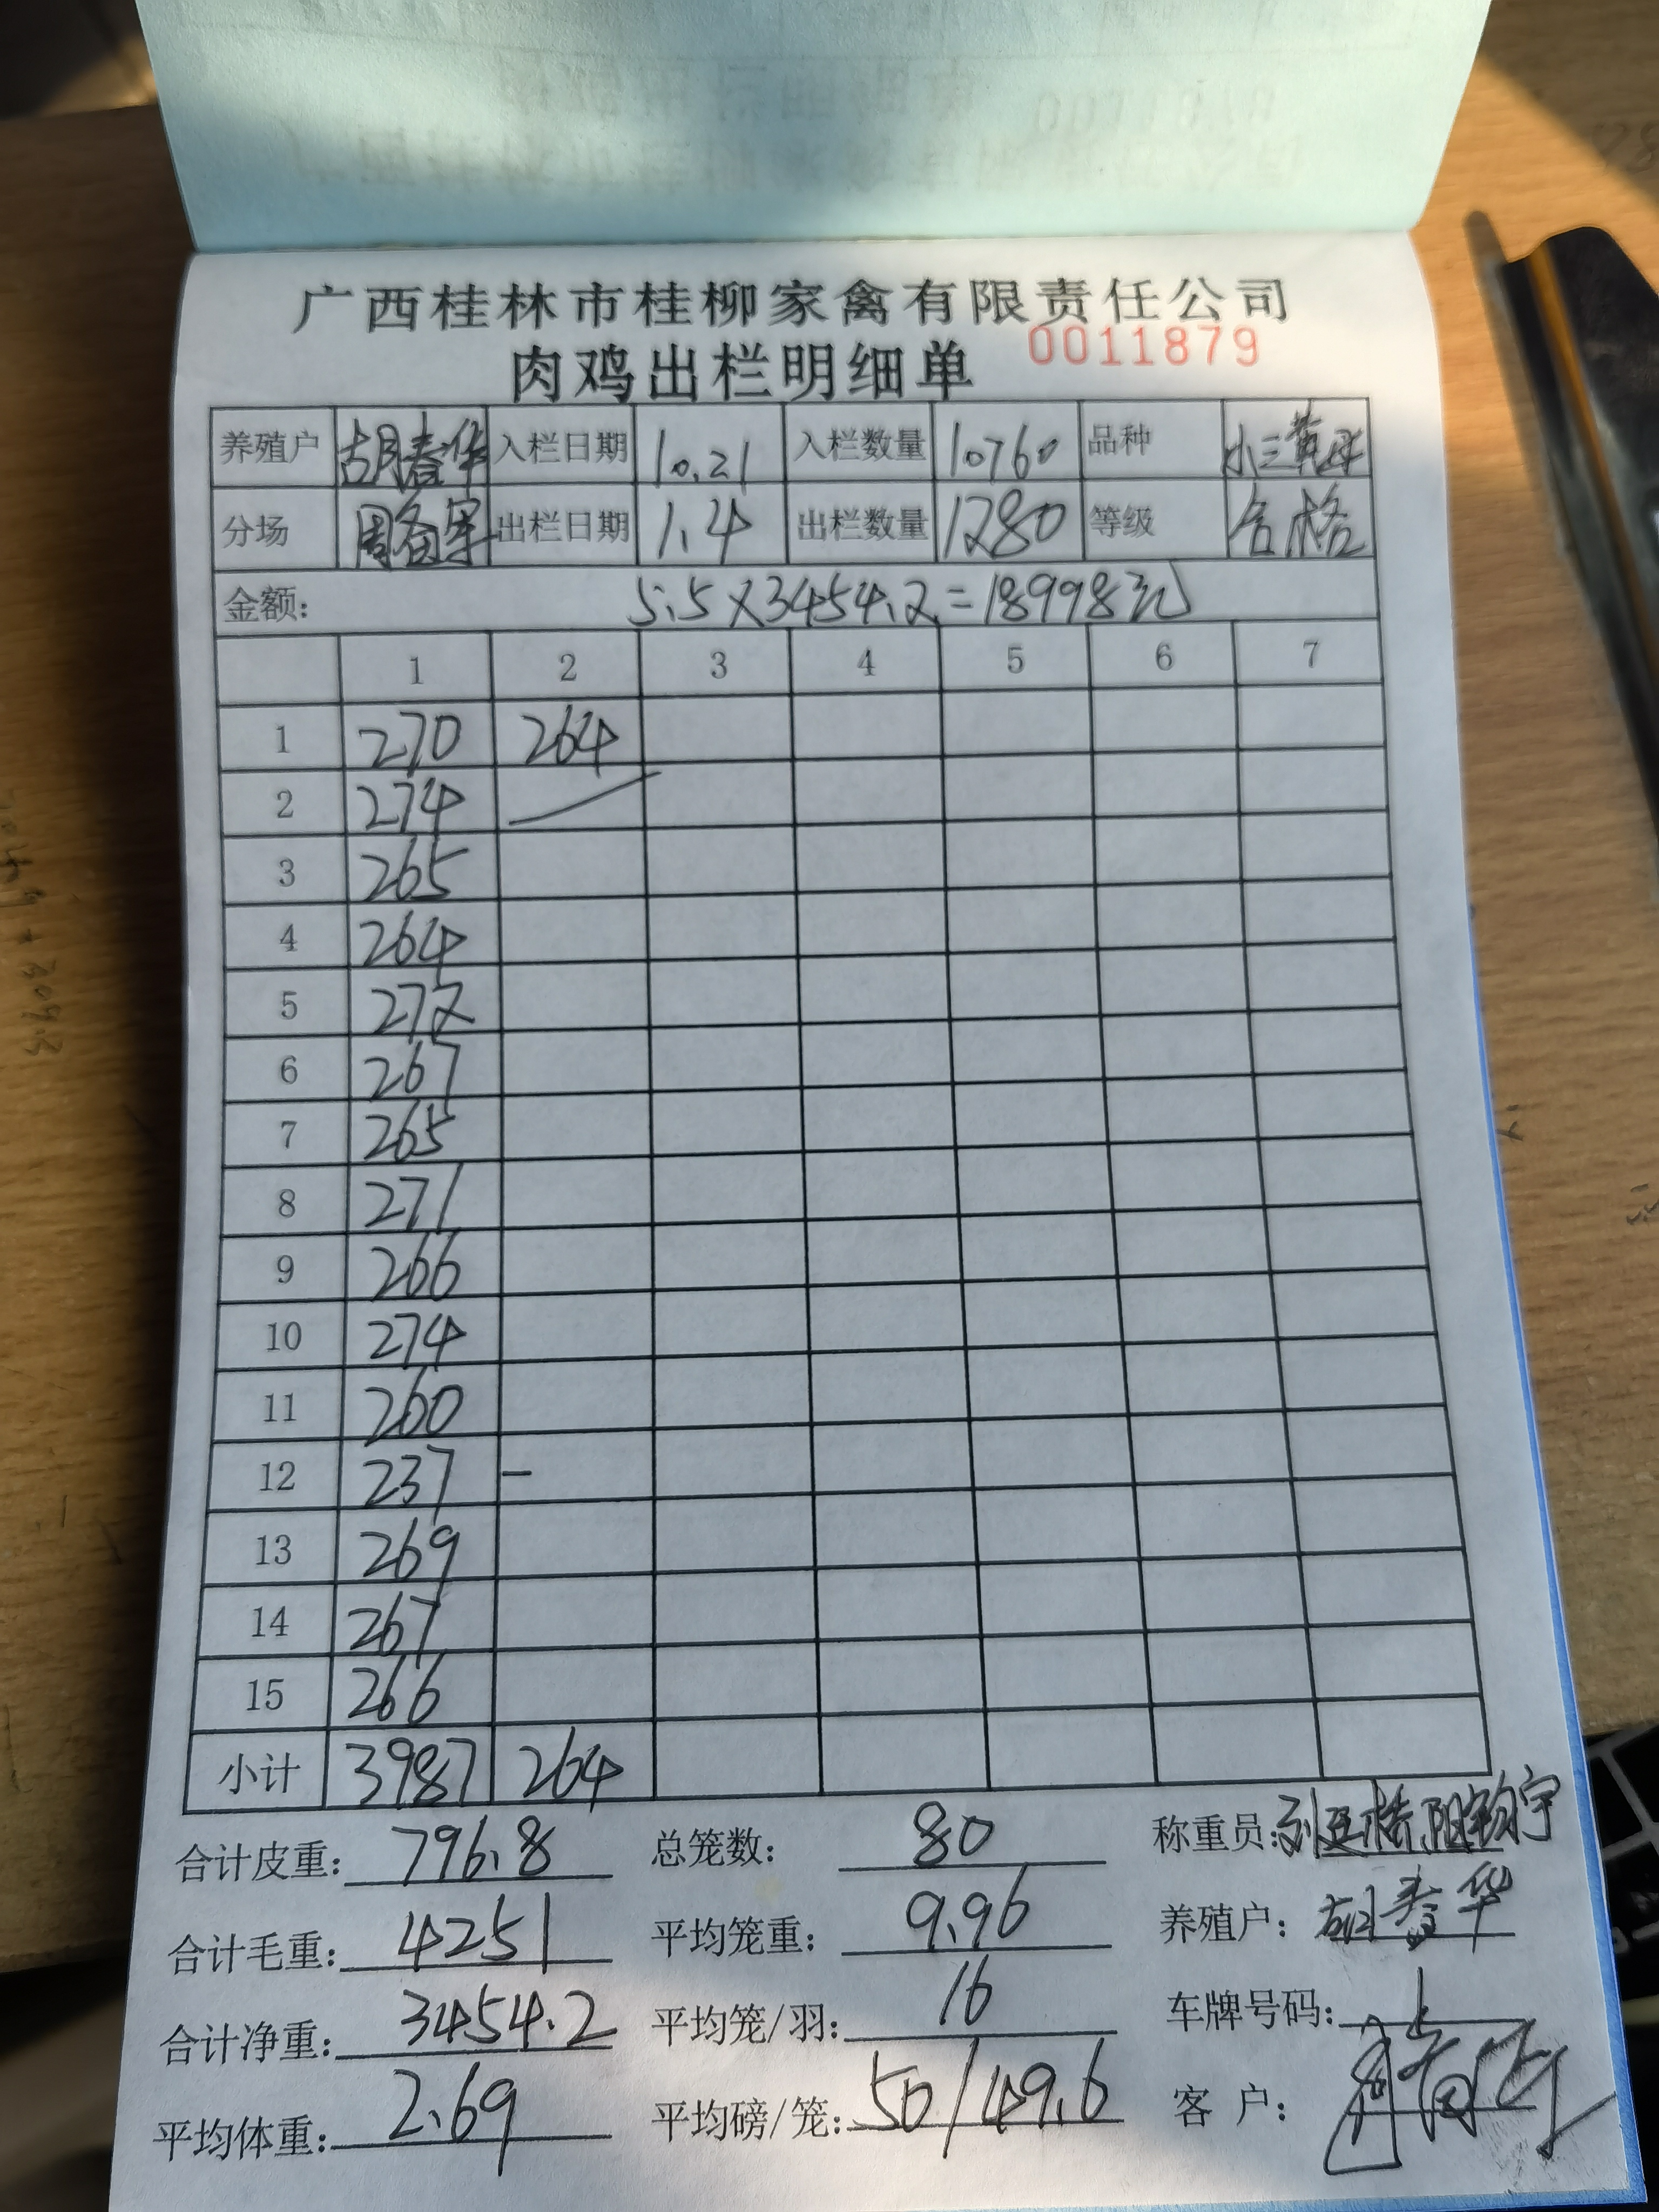 广西桂林市桂柳家禽有限责任公司
肉鸡出栏明细单 0011879
养殖户 胡春华 入栏日期 10.21 入栏数量 10760 品种 小三黄母
分场 出栏日期 1.4 出栏数量 1280 等级 合格
金额: 5.5×3454.2=18998元
1 2 3 4 5 6 7
1 270 264
2 274
3 265
4 264
5 272
6 267
7 265
8 271
9 266
10 274
11 260
12 237 —
13 269
14 267
15 266
小计 3987 264
合计皮重: 796.8 总笼数: 80 称重员:
合计毛重: 4251 平均笼重: 9.96 养殖户: 胡春华
合计净重: 3454.2 平均笼/羽: 16 车牌号码:
平均体重: 2.69 平均磅/笼: 50/49.6 客 户: